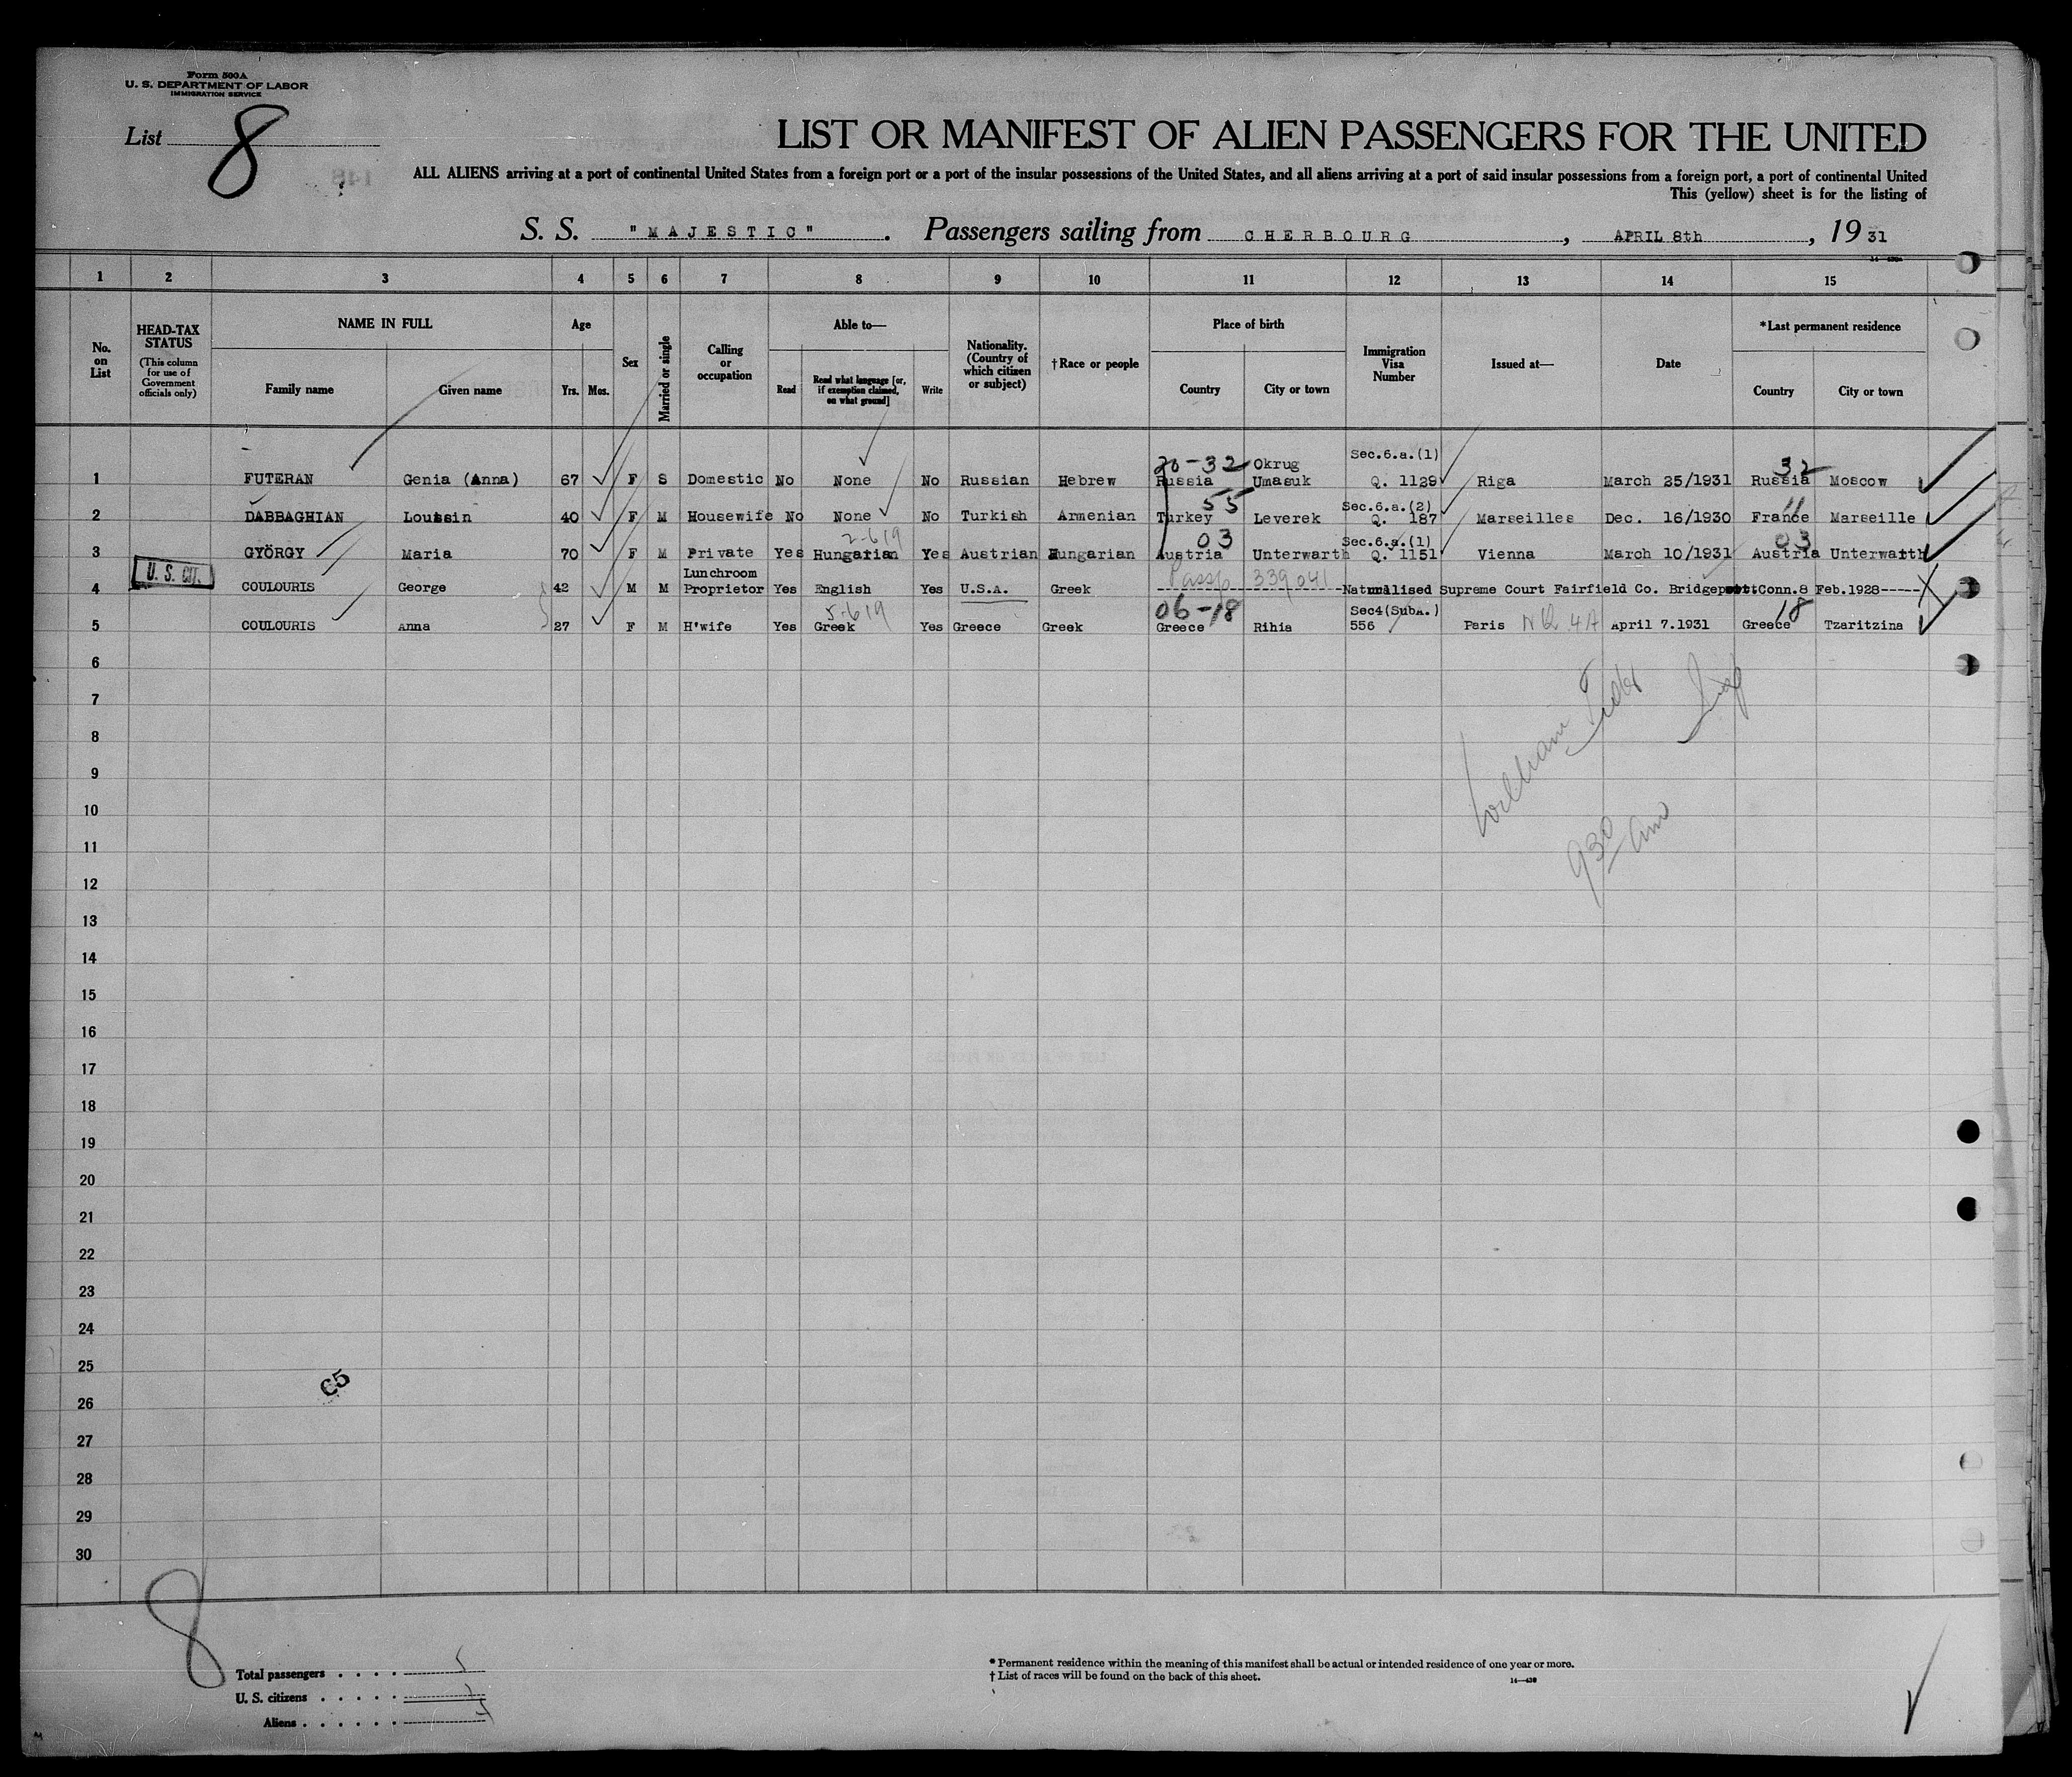 Form 500A
U. S. DEPARTMENT OF LABOR
IMMIGRATION SERVICE
List 8
LIST OR MANIFEST OF ALIEN PASSENGERS FOR THE UNITED
ALL ALIENS arriving at a port of continental United States from a foreign port or a port of the insular possessions of the United States, and all aliens arriving at a port of said insular possessions from a foreign port, a port of continental United
This (yellow) sheet is for the listing of
S. S. "MAJESTIC". Passengers sailing from CHERBOURG, APRIL 8th, 19 31
1 2 3 4 5 6 7 8 9 10 11 12 13 14 15
No. on List
HEAD-TAX STATUS
(This column for use of Government officials only)
NAME IN FULL
Family name Given name
Age
Yrs. Mos.
Sex
Married or single
Calling or occupation
Able to—
Read
Read what language [or, if exemption claimed, on what ground]
Write
Nationality. (Country of which citizen or subject)
†Race or people
Place of birth
Country City or town
Immigration Visa Number
Issued at—
Date
*Last permanent residence
Country City or town
20-32 Okrug Sec.6.a.(1) 32
1 FUTERAN Genia (Anna) 67 F S Domestic No None No Russian Hebrew Russia Umasuk Q. 1129 Riga March 25/1931 Russia Moscow
55 Sec.6.a.(2) 11
2 DABBAGHIAN Loussin 40 F M Housewife No None No Turkish Armenian Turkey Leverek Q. 187 Marseilles Dec. 16/1930 France Marseille
2-619 03 Sec.6.a.(1) 03
3 GYÖRGY Maria 70 F M Private Yes Hungarian Yes Austrian Hungarian Austria Unterwarth Q. 1151 Vienna March 10/1931 Austria Unterwarth
U. S. CIT. Lunchroom Passp. 339041
4 COULOURIS George 42 M M Proprietor Yes English Yes U.S.A. Greek Naturalised Supreme Court Fairfield Co. Bridgeport Conn. 8 Feb.1928
5-619 06-18 Sec4(SubA.) 18
5 COULOURIS Anna 27 F M H'wife Yes Greek Yes Greece Greek Greece Rihia 556 Paris NQ 4A April 7.1931 Greece Tzaritzina
6
7
William
8
9
10
930 am
11
12
13
14
15
16
17
18
19
20
21
22
23
24
25
C5
26
27
28
29
30
8
Total passengers . . . . 5
U. S. citizens . . . . . 1
Aliens . . . . . .
* Permanent residence within the meaning of this manifest shall be actual or intended residence of one year or more.
† List of races will be found on the back of this sheet.